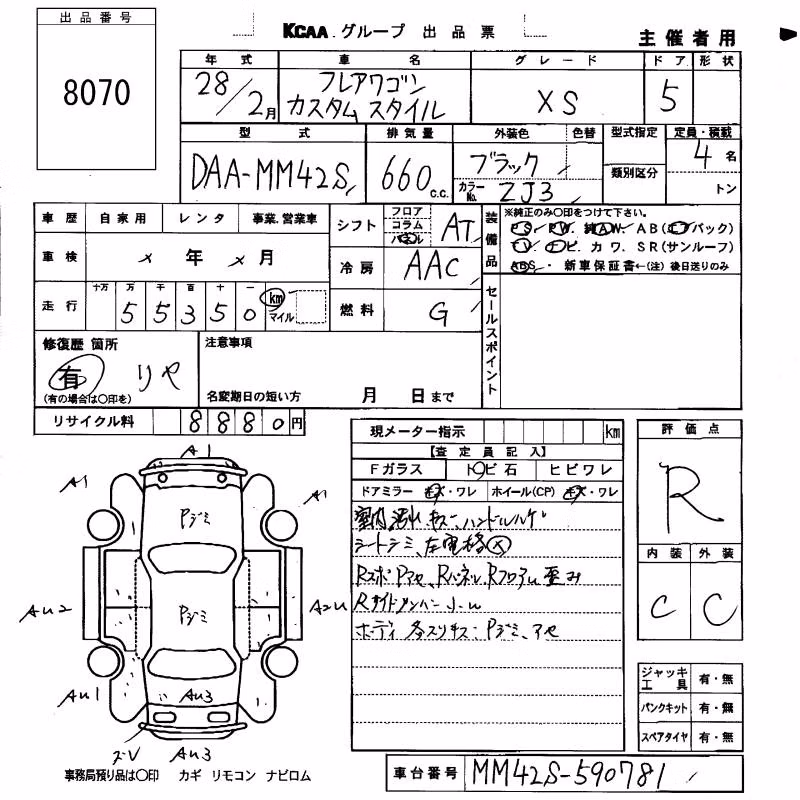 出品番号
8070
KCAA グループ 出品票
主催者用
年式 車名 グレード ドア 形状
28/2月 フレアワゴン カスタムスタイル XS 5
型式 排気量 外装色 色替 型式指定 定員・積載
DAA-MM42S 660 c.c. ブラック 類別区分 4名
カラーNo. ZJ3 トン
車歴 自家用 レンタ 事業.営業車
シフト フロア コラム パネル AT
装備品 ※純正のみ○印をつけて下さい。
PS. PW. 純AW. AB(エアバック)
TV. ナビ. カワ. SR(サンルーフ)
ABS. 新車保証書←(注)後日送りのみ
車検 × 年 × 月
冷房 AAC
走行 十万 万 千 百 十 一
55350 km マイル
燃料 G
セールスポイント
修復歴 箇所
有 リヤ
(有の場合は○印を)
注意事項
名変期日の短い方 月 日まで
リサイクル料 8880円
現メーター指示 km
【査定員記入】
Fガラス トビ石 ヒビワレ
ドアミラー キズ・ワレ ホイール(CP) キズ・ワレ
室内汚れ キズ、ハンドルハゲ
シートシミ、左電格×
Rスポ Pアセ、Rパネル、Rフロアー歪み
Rサイドメンバー
ボディ 各スリキズ Pジミ、アセ
評価点
R
内装 外装
C C
A1
A1
A1
Pジミ
AU2
A2U
Pジミ
AU1
AU3
A1
ズV
AU3
ジャッキ工具 有・無
パンクキット 有・無
スペアタイヤ 有・無
事務局預り品は○印 カギ リモコン ナビロム
車台番号 MM42S-590781